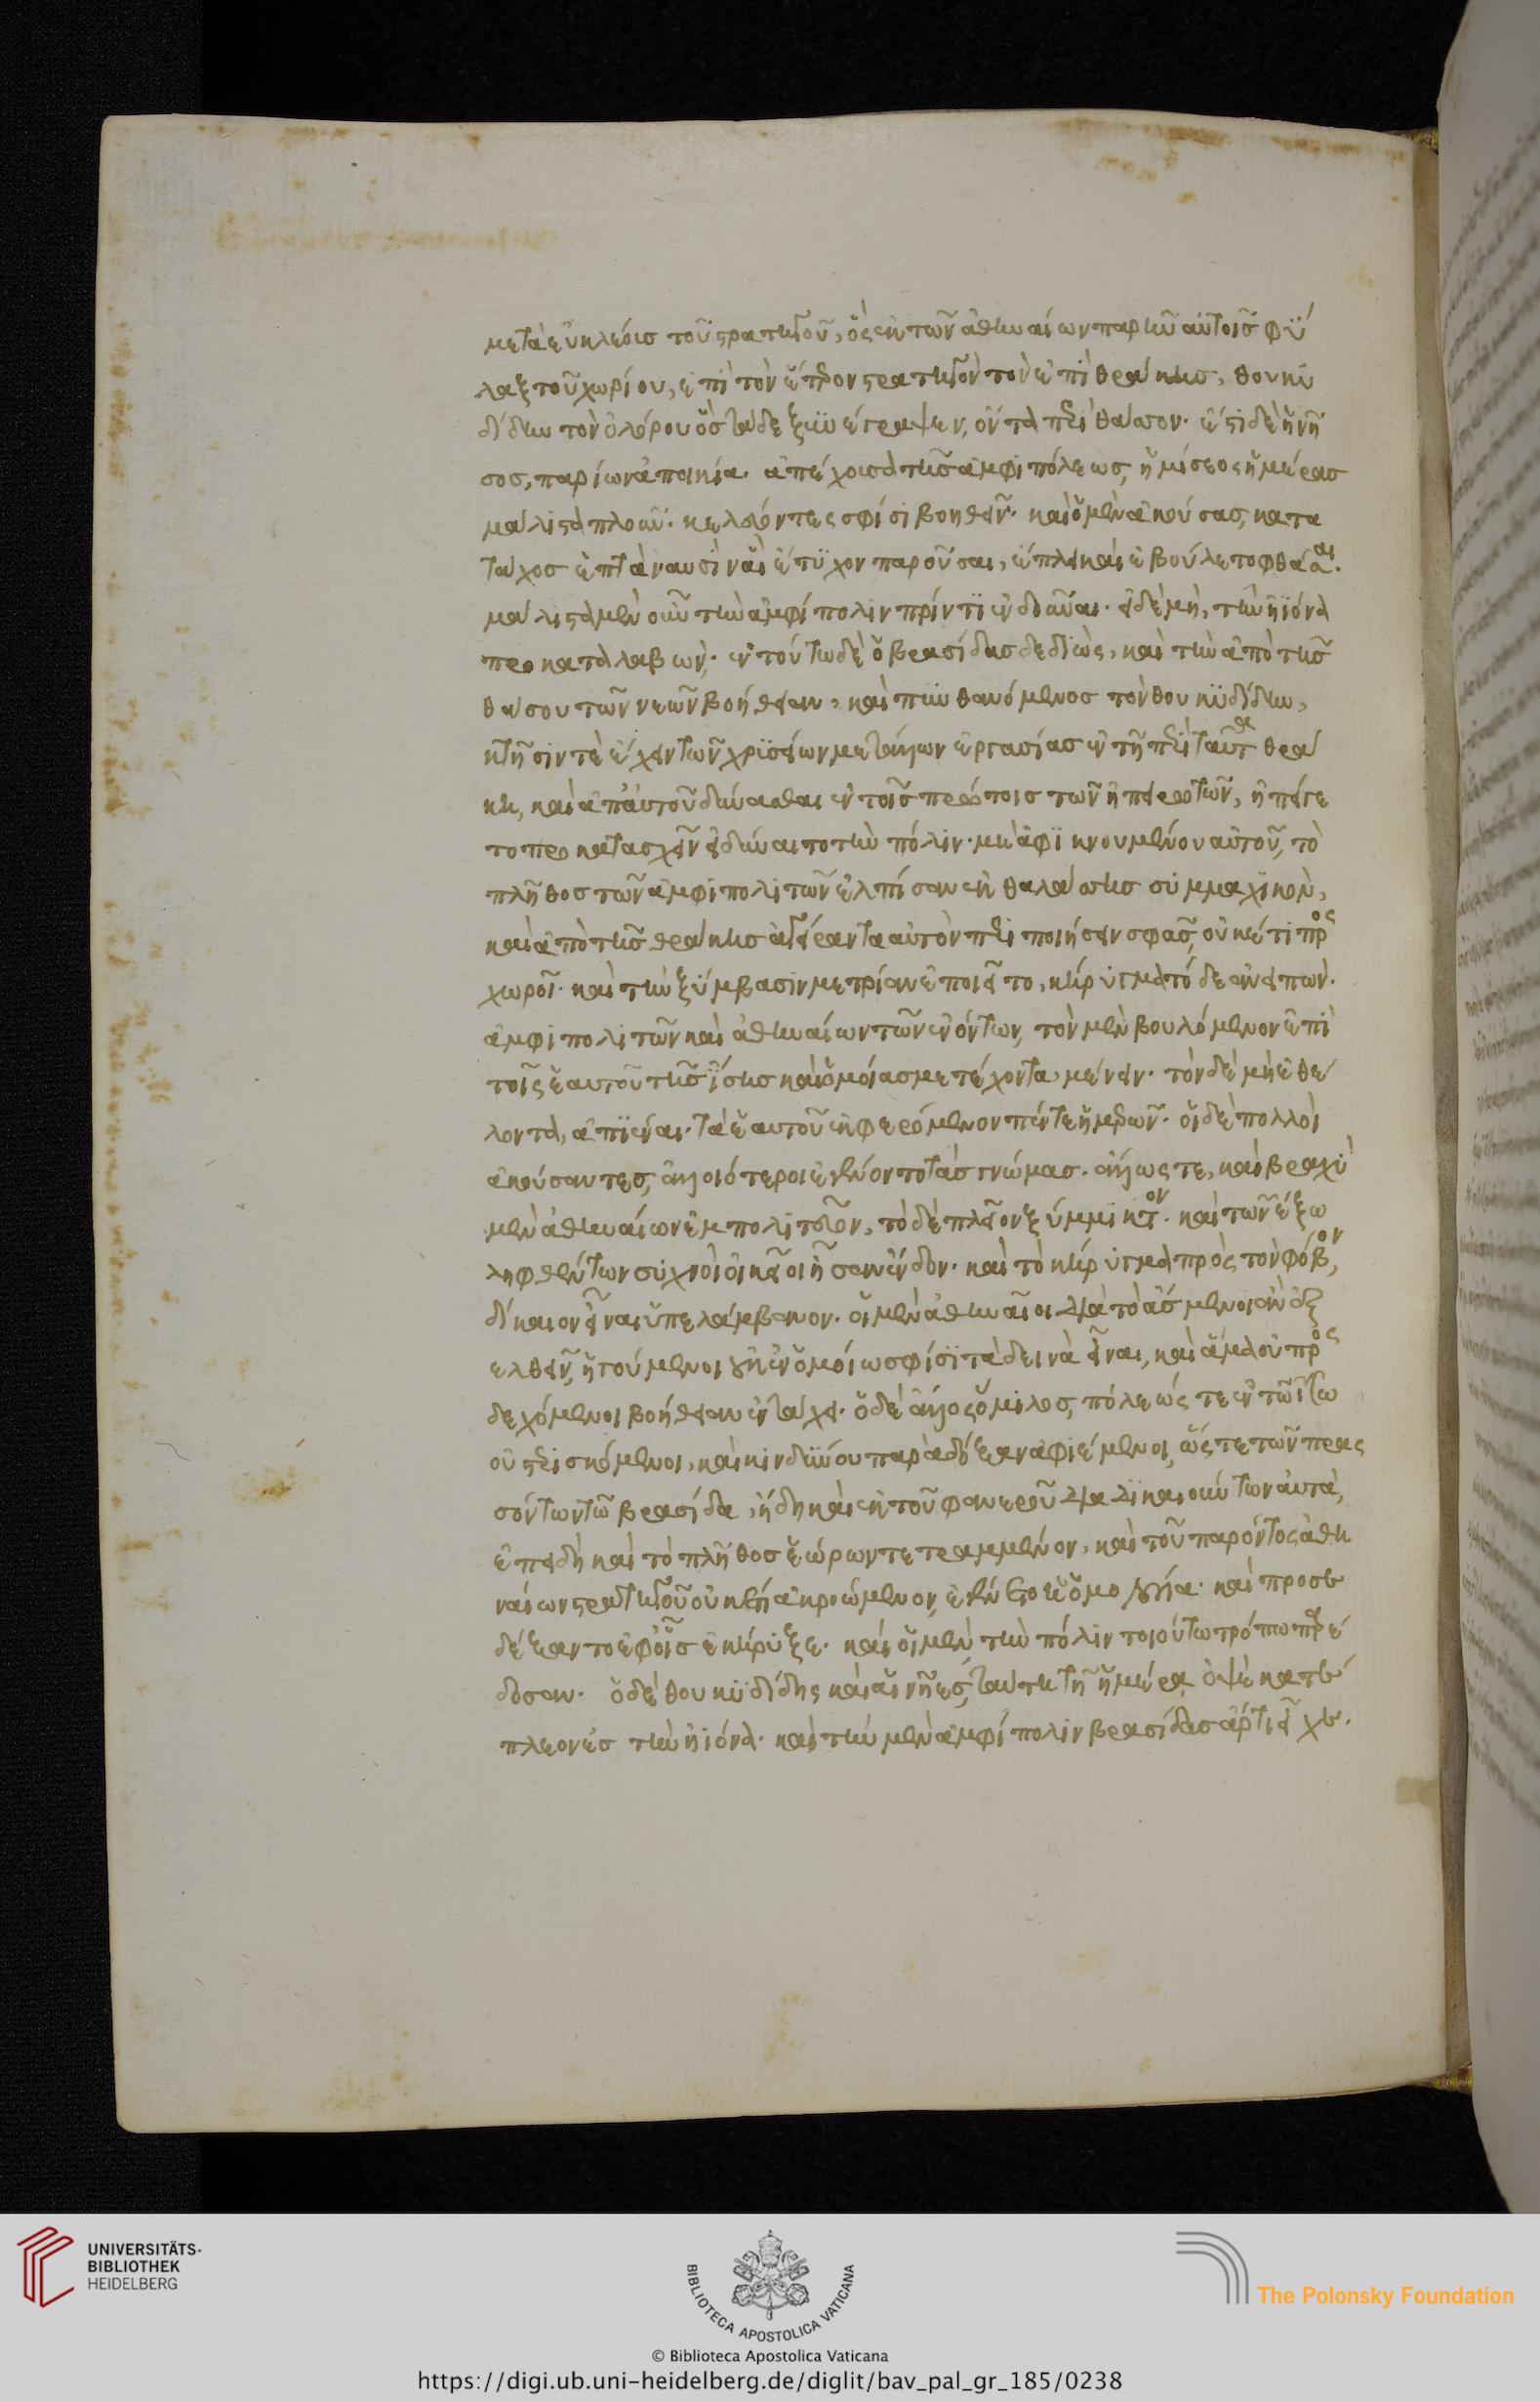 μετὰ εὐκλέους τοῦ στρατηγοῦ, ὃς ἐκ τῶν ἀθηναίων παρῆν αὐτοῖς φύ
λαξ τοῦ χωρίου, ἐπὶ τὸν ἕτερον στρατηγὸν τὸν ἐπὶ θράκης, θουκυ
δίδην τὸν ὀλόρου ὃς τάδε ξυνέγραψεν, ὄντα περὶ θάσον· ἔστι δὲ ἡ νῆ
σος, παρίων ἀποικία· ἀπέχουσα τῆς ἀμφιπόλεως, ἡμίσεος ἡμέρας
μάλιστα πλοῦν· κελεύοντες σφίσι βοηθεῖν· καὶ ὁ μὲν ἀκούσας, κατα
τάχος ἑπτὰ ναυσὶν αἳ ἔτυχον παροῦσαι, ἔπλει καὶ ἐβούλετο φθάσαι·
μάλιστα μὲν οὖν τὴν ἀμφίπολιν πρίν τι ἐνδοῦναι· εἰ δὲ μὴ, τὴν ἠϊόνα
προκαταλαβών· ἐν τούτω δὲ ὁ βρασίδας δεδιὼς, καὶ τὴν ἀπὸ τῆς
θάσου τῶν νεῶν βοήθειαν, καὶ πυνθανόμενος τὸν θουκυδίδην,
κτῆσίν τε ἔχειν τῶν χρυσείων μετάλλων ἐργασίας ἐν τῆ περὶ ταῦτα θρά
κη, καὶ ἀπ' αὐτοῦ δύνασθαι ἐν τοῖς πρώτοις τῶν ἠπειρωτῶν, ἠπείγε
το προκατασχεῖν εἰ δύναιτο τὴν πόλιν· μὴ ἀφικνουμένου αὐτοῦ, τὸ
πλῆθος τῶν ἀμφιπολιτῶν ἐλπίσαν ἐκ θαλάσσης συμμαχικὸν,
καὶ ἀπὸ τῆς θράκης ἀγείραντα αὐτὸν περιποιήσειν σφᾶς, οὐκέτι προς
χωροῖ· καὶ τὴν ξύμβασιν μετρίαν ἐποιεῖτο, κήρυγμα τόδε ἀνειπών·
ἀμφιπολιτῶν καὶ ἀθηναίων τῶν ἐνόντων, τὸν μὲν βουλόμενον ἐπὶ
τοῖς ἑαυτοῦ τῆς ἴσης καὶ ὁμοίας μετέχοντα, μένειν· τὸν δὲ μὴ ἐθέ
λοντα, ἀπιέναι· τὰ ἑαυτοῦ ἐκφερόμενον πέντε ἡμερῶν· οἱ δὲ πολλοὶ
ἀκούσαντες, ἀλλοιότεροι ἐγένοντο τὰς γνώμας· ἄλλως τε, καὶ βραχὺ
μὲν ἀθηναίων ἐμπολιτεῦον, τὸ δὲ πλεῖον ξύμμικτον· καὶ τῶν ἔξω
ληφθέντων συχνοὶ οἰκεῖοι ἦσαν ἔνδον· καὶ τὸ κήρυγμα πρὸς τὸν φόβον,
δίκαιον εἶναι ὑπελάμβανον· οἱ μὲν ἀθηναῖοι διὰ τὸ ἄσμενοι ἂν ἐξ
ελθεῖν, ἡγούμενοι οὐκ ἐν ὁμοίω σφίσι τὰ δεινὰ εἶναι, καὶ ἅμα οὐ προς
δεχόμενοι βοήθειαν ἐν τάχει· ὁ δὲ ἄλλος ὅμιλος, πόλεώς τε ἐν τῶ ἴσω
οὐ στερισκόμενοι, καὶ κινδύνου παρὰ δόξαν ἀφιέμενοι, ὥστε τῶν πρας
σόντων τῶ βρασίδα, ἤδη καὶ ἐκ τοῦ φανεροῦ διαδικαιούντων αὐτὰ,
ἐπειδὴ καὶ τὸ πλῆθος ἑώρων τετραμμένον, καὶ τοῦ παρόντος ἀθη
ναίων στρατηγοῦ οὐκέτι ἀκροώμενον, ἐγένετο ἡ ὁμολογία· καὶ προσε
δέξαντο ἐφ' οἷς ἐκήρυξε· καὶ οἱ μὲν τὴν πόλιν τοιούτω τρόπω παρέ
δοσαν· ὁ δὲ θουκυδίδης καὶ αἱ νῆες, ταύτη τῆ ἡμέρα ὀψὲ κατέ
πλεον ἐς τὴν ἠϊόνα· καὶ τὴν μὲν ἀμφίπολιν βρασίδας ἄρτι εἶχε.
UNIVERSITÄTS-
BIBLIOTHEK
HEIDELBERG
BIBLIOTECA APOSTOLICA VATICANA
The Polonsky Foundation
© Biblioteca Apostolica Vaticana
https://digi.ub.uni-heidelberg.de/diglit/bav_pal_gr_185/0238